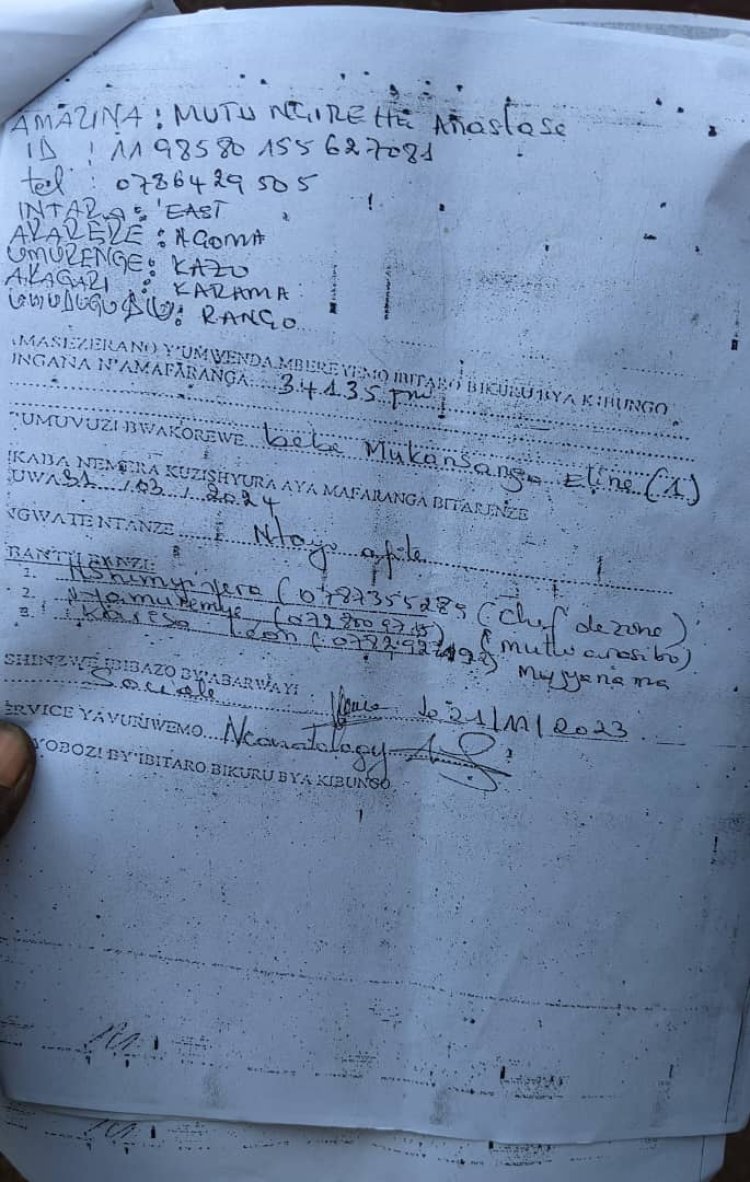 AMAZINA : MUTUNGIREHE Anastase
ID : 1198580155627081
tel : 0786429505
INTARA : EAST
AKARERE : NGOMA
UMURENGE : KAZO
AKAGARI : KARAMA
UMUDUGUDU : RANGO
AMASEZERANO Y'UMWENDA MBEREYEMO IBITARO BIKURU BYA KIBUNGO
INGANA N'AMAFARANGA 34135
UMUVUZI BWAKOREWE bebe Mukansanga Eline (1)
NKABA NEMERA KUZISHYURA AYA MAFARANGA BITARENZE
KUWA 31/03/2024
INGWATE NTANZE Ntayo afite
ABANTU BANZI:
1. Nshimiyi (0787355289 (Chef de zone)
2. Nyamuremye (
3. Kareso Leon (
USHINZWE IBIBAZO BY'ABARWAYI
Sociale le 21/11/2023
SERVICE YAVURIWEMO Neonatology
UBUYOBOZI BY'IBITARO BIKURU BYA KIBUNGO